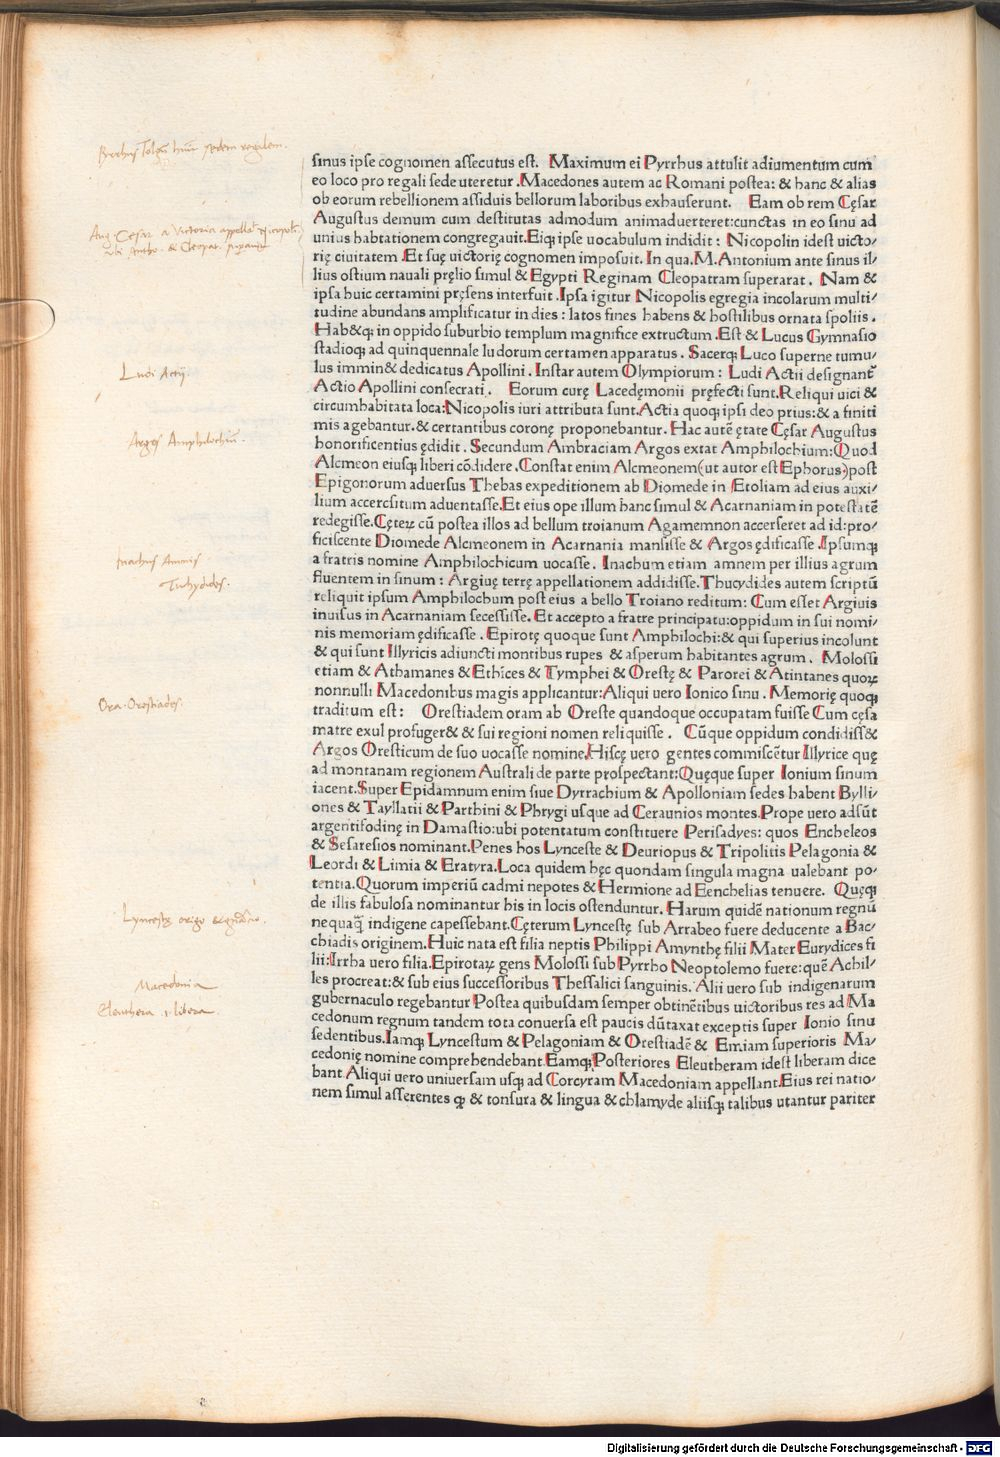 sinus ipse cognomen assecutus est. Maximum ei Pyrrhus attulit adiumentum cum
eo loco pro regali sede uteretur .Macedones autem ac Romani postea: & hanc & alias
ob eorum rebellionem assiduis bellorum laboribus exhauserunt. Eam ob rem Cęsar
Augustus demum cum destitutas admodum animaduerteret:cunctas in eo sinu ad
unius habtationem congregauit.Eiqꝫ ipse uocabulum indidit : Nicopolin idest uicto/
rię ciuitatem .Et suę uictorię cognomen imposuit. In qua.M.Antonium ante sinus il/
lius ostium nauali pręlio simul & Egypti Reginam Cleopatram superarat . Nam &
ipsa huic certamini pręsens interfuit .Ipsa igitur Nicopolis egregia incolarum multi/
tudine abundans amplificatur in dies : latos fines habens & hostilibus ornata spoliis .
Hab&qꝫ in oppido suburbio templum magnifice extructum .Est & Lucus Gymnasio
stadioqꝫ ad quinquennale ludorum certamen apparatus . Sacerqꝫ Luco superne tumu/
lus immin& dedicatus Apollini . Instar autem Olympiorum : Ludi Actii designant᷑
Actio Apollini consecrati . Eorum curę Lacedęmonii pręfecti sunt.Reliqui uici &
circumhabitata loca:Nicopolis iuri attributa sunt.Actia quoqꝫ ipsi deo prius:& a finiti
mis agebantur.& certantibus coronę proponebantur . Hac autē ętate Cęsar Augustus
honorificentius ędidit . Secundum Ambraciam Argos extat Amphilochium:Quod
Alcmeon eiusqꝫ liberi cōdidere .Constat enim Alcmeonem(ut autor est Ephorus)post
Epigonorum aduersus Thebas expeditionem ab Diomede in Ætoliam ad eius auxi/
lium accersitum aduentasse.Et eius ope illum hanc simul & Acarnaniam in potestatē
redegisse.Cęteꝝ cū postea illos ad bellum troianum Agamemnon accerseret ad id:pro/
ficiscente Diomede Alcmeonem in Acarnania mansisse & Argos ędificasse .Ipsumqꝫ
a fratris nomine Amphilochicum uocasse . Inachum etiam amnem per illius agrum
fluentem in sinum : Argiuę terrę appellationem addidisse.Thucydides autem scriptū
reliquit ipsum Amphilochum post eius a bello Troiano reditum: Cum esset Argiuis
inuisus in Acarnaniam secessisse. Et accepto a fratre principatu:oppidum in sui nomi/
nis memoriam ędificasse . Epirotę quoque sunt Amphilochi:& qui superius incolunt
& qui sunt Illyricis adiuncti montibus rupes & asperum habitantes agrum . Molossi
etiam & Athamanes & Ethices & Tymphei & Orestę & Parorei & Atintanes quoꝝ
nonnulli Macedonibus magis applicantur:Aliqui uero Ionico sinu . Memorię quoqꝫ
traditum est : Orestiadem oram ab Oreste quandoque occupatam fuisse Cum cęsa
matre exul profuger& & sui regioni nomen reliquisse . Cūque oppidum condidiss&
Argos Oresticum de suo uocasse nomine.Hiscę uero gentes commiscētur Illyrice quę
ad montanam regionem Australi de parte prospectant:Quęque super Ionium sinum
iacent.Super Epidamnum enim siue Dyrrachium & Apolloniam sedes habent Bylli/
ones & Tayllatii & Parthini & Phrygi usque ad Ceraunios montes.Prope uero adsūt
argentifodinę in Damastio:ubi potentatum constituere Perisadyes: quos Encheleos
& Sesaresios nominant.Penes hos Lynceste & Deuriopus & Tripolitis Pelagonia &
Leordi & Limia & Eratyra.Loca quidem hęc quondam singula magna ualebant po/
tentia.Quorum imperiū cadmi nepotes & Hermione ad Eenchelias tenuere. Quęqꝫ
de illis fabulosa nominantur his in locis ostenduntur. Harum quidē nationum regnū
nequaq̄ indigene capessebant.Cęterum Lyncestę sub Arrabeo fuere deducente a Bac/
chiadis originem.Huic nata est filia neptis Philippi Amynthę filii Mater Eurydices fi
lii:Irrha uero filia.Epirotaꝝ gens Molossi sub Pyrrho Neoptolemo fuere:quē Achil/
les procreat:& sub eius successoribus Thessalici sanguinis. Alii uero sub indigenarum
gubernaculo regebantur Postea quibusdam semper obtinētibus uictoribus res ad Ma
cedonum regnum tandem tota conuersa est paucis dūtaxat exceptis super Ionio sinu
sedentibus.Iamqꝫ Lyncestum & Pelagoniam & Orestiadē & Emiam superioris Ma/
cedonię nomine comprehendebant.Eamqꝫ Posteriores Eleutheram idest liberam dice
bant.Aliqui uero uniuersam usqꝫ ad Corcyram Macedoniam appellant.Eius rei natio/
nem simul asserentes ꝙ & tonsura & lingua & chlamyde aliisqꝫ talibus utantur pariter
sedem regalem.
Aug Cesar a Victoria
Ludi Actij.
Argos Amphilochiū.
Inachus Amnis
Tuchydides.
Ora Orestiades.
Lyncestę origo
Macedonia
Eleuthera .i. libera
Digitalisierung gefördert durch die Deutsche Forschungsgemeinschaft - DFG